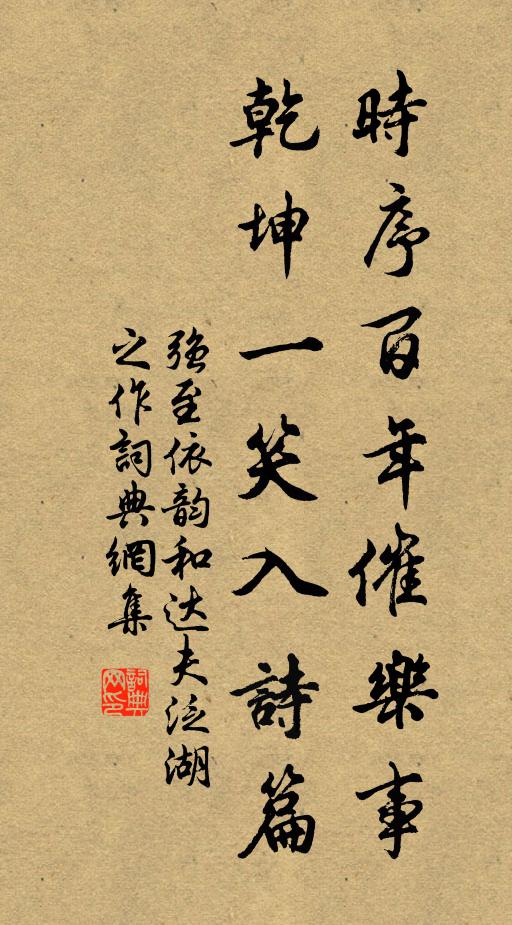 時序百年催樂事
乾坤一笑入詩篇
强至依韵和达夫泛湖
之作詞典網集
詞典
网印